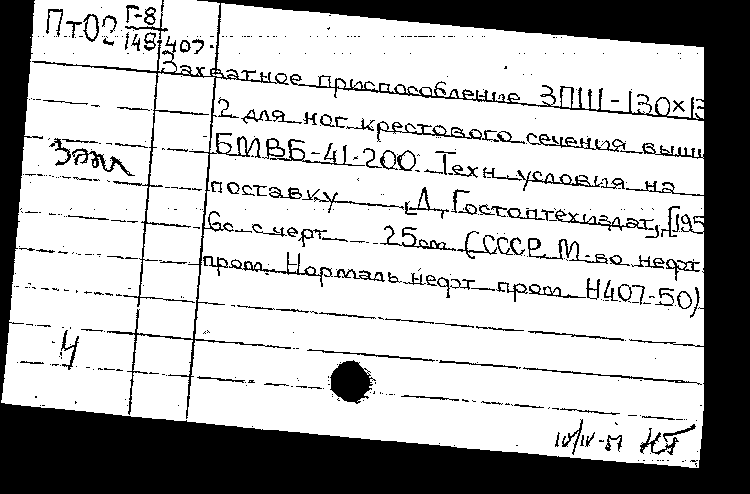 ПтО2 Г-8
148-407.
Захватное приспособление ЗПШ-130×13
2 для ног крестового сечения выш
БМВБ-41-200 Техн условия на
поставку [Л, Гостоптехиздат, [195
6с. с черт 25см (СССР. М-во нефт.
пром. Нормаль нефт пром. Н407-50)
4